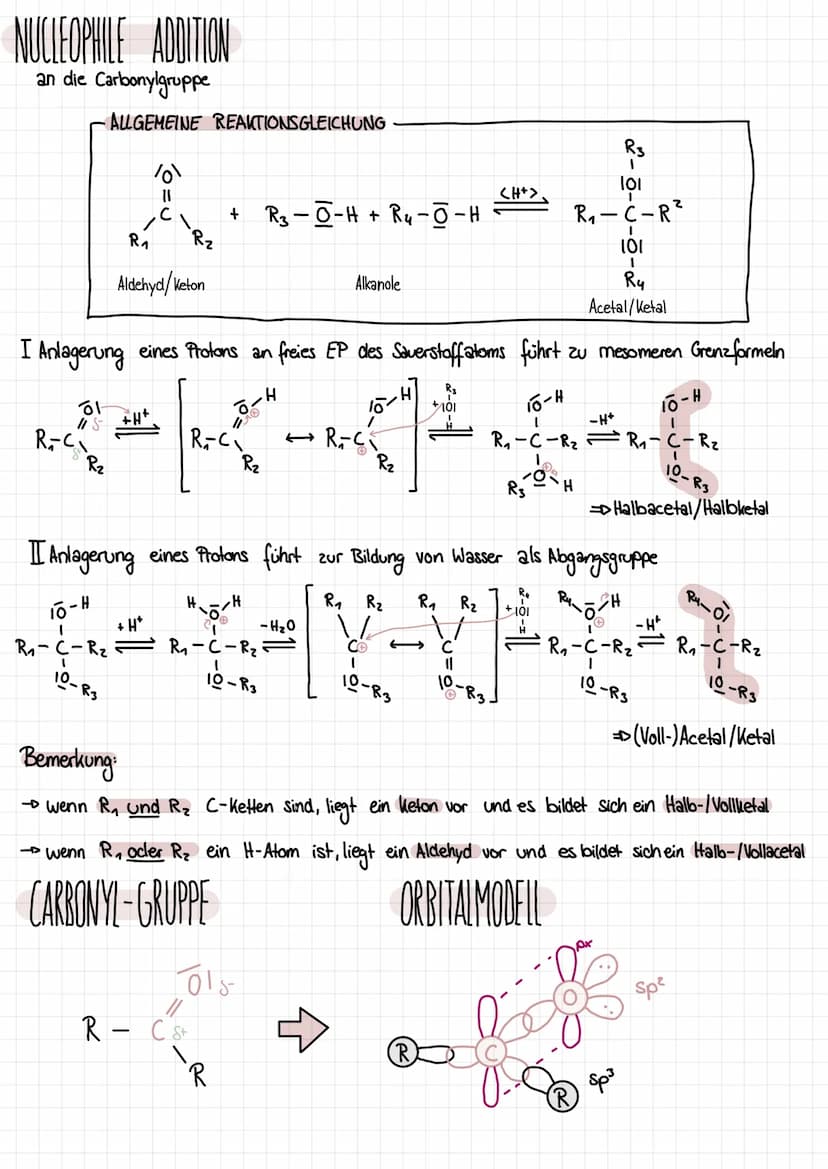 NUCLEOPHILE ADDITION
an die Carbonylgruppe
ALLGEMEINE REAKTIONSGLEICHUNG
R3
|O| |O|
|| <H+>
C + R3 – O – H + R4 – O – H ⇌ R1 – C – R²
R1 R2 |O|
R4
Aldehyd/Keton Alkanole Acetal/Ketal
I Anlagerung eines Protons an freies EP des Sauerstoffatoms führt zu mesomeren Grenzformeln
O| δ- +H+ O – H |O – H R3 + |O| H |O – H -H+ |O – H
R1 – C δ+ ⇌ [ R1 – C ↔ R1 – C ⊕ ] ⇌ R1 – C – R2 ⇌ R1 – C – R2
R2 R2 R2 R3 O ⊕ H |O – R3
⇒ Halbacetal/Halbketal
II Anlagerung eines Protons führt zur Bildung von Wasser als Abgangsgruppe
|O – H H O H ⊕ R1 R2 R1 R2 R4 + |O| H R4 O H ⊕ R4 O|
R1 – C – R2 +H+ ⇌ R1 – C – R2 -H2O ⇌ [ C ⊕ ↔ C ] ⇌ R1 – C – R2 -H+ ⇌ R1 – C – R2
|O – R3 |O – R3 |O – R3 |O ⊕ – R3 |O – R3 |O – R3
⇒ (Voll-)Acetal/Ketal
Bemerkung:
→ wenn R1 und R2 C-Ketten sind, liegt ein Keton vor und es bildet sich ein Halb-/Vollketal
→ wenn R1 oder R2 ein H-Atom ist, liegt ein Aldehyd vor und es bildet sich ein Halb-/Vollacetal
CARBONYL-GRUPPE ORBITALMODELL
px
O| δ- O sp²
R – C δ+ R C
R R sp³